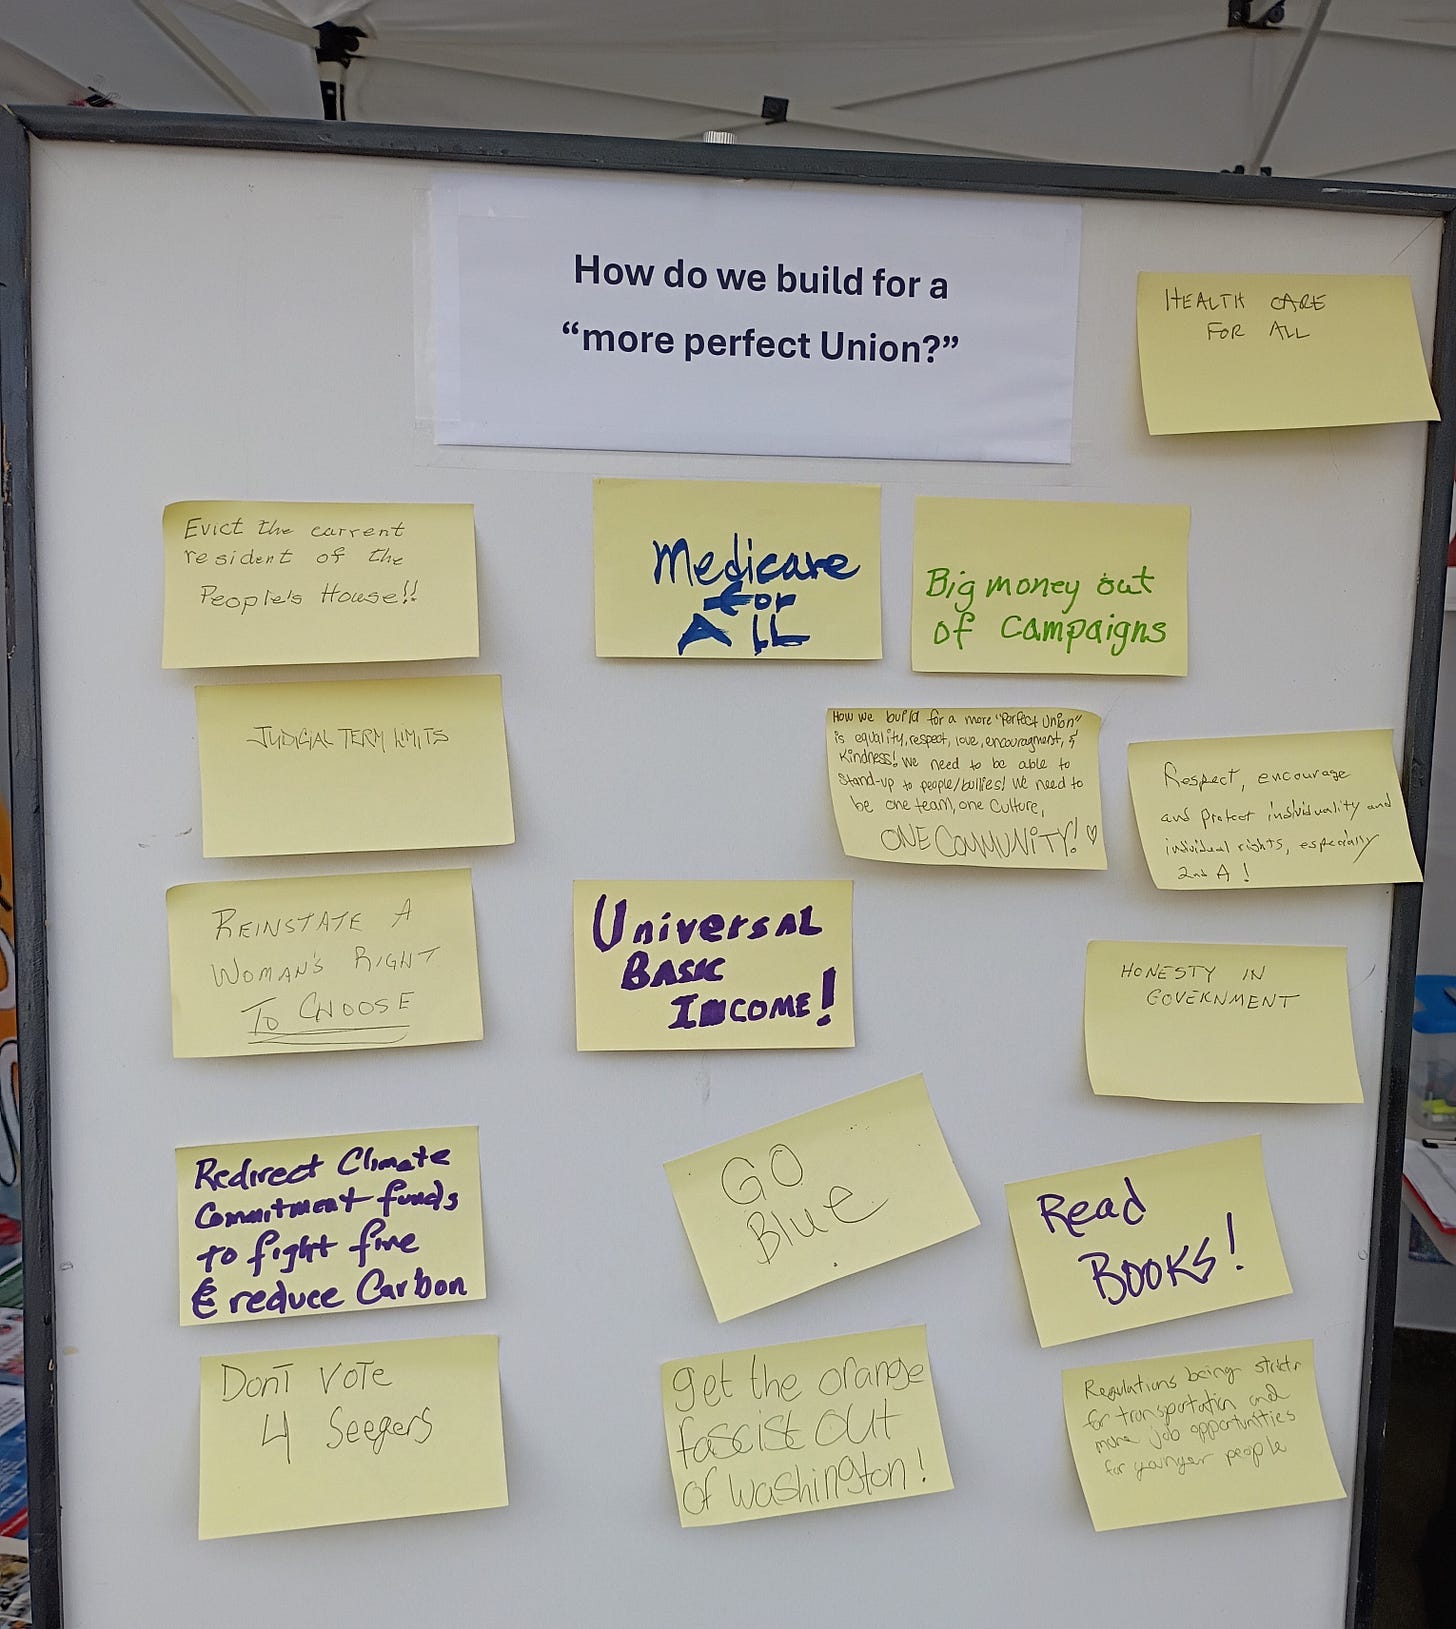 How do we build for a
“more perfect Union?”
HEALTH CARE
FOR ALL
Evict the current
resident of the
People's House!!
Medicare
for
ALL
Big money out
of campaigns
JUDICIAL TERM LIMITS
How we build for a more "Perfect Union"
is equality, respect, love, encouragment, &
Kindness! We need to be able to
Stand-up to people/bullies! We need to
be one team, one culture,
ONE COMMUNITY! ♡
Respect, encourage
and protect individuality and
individual rights, especially
2nd A!
REINSTATE A
WOMAN'S RIGHT
TO CHOOSE
UNIVERSAL
BASIC
INCOME!
HONESTY IN
GOVERNMENT
Redirect Climate
Commitment funds
to fight fire
& reduce Carbon
GO
Blue
Read
BOOKS!
DONT VOTE
4 Seegers
get the orange
fascist OUT
of washington!
Regulations being stricter
for transportation and
more job opportunities
for younger people